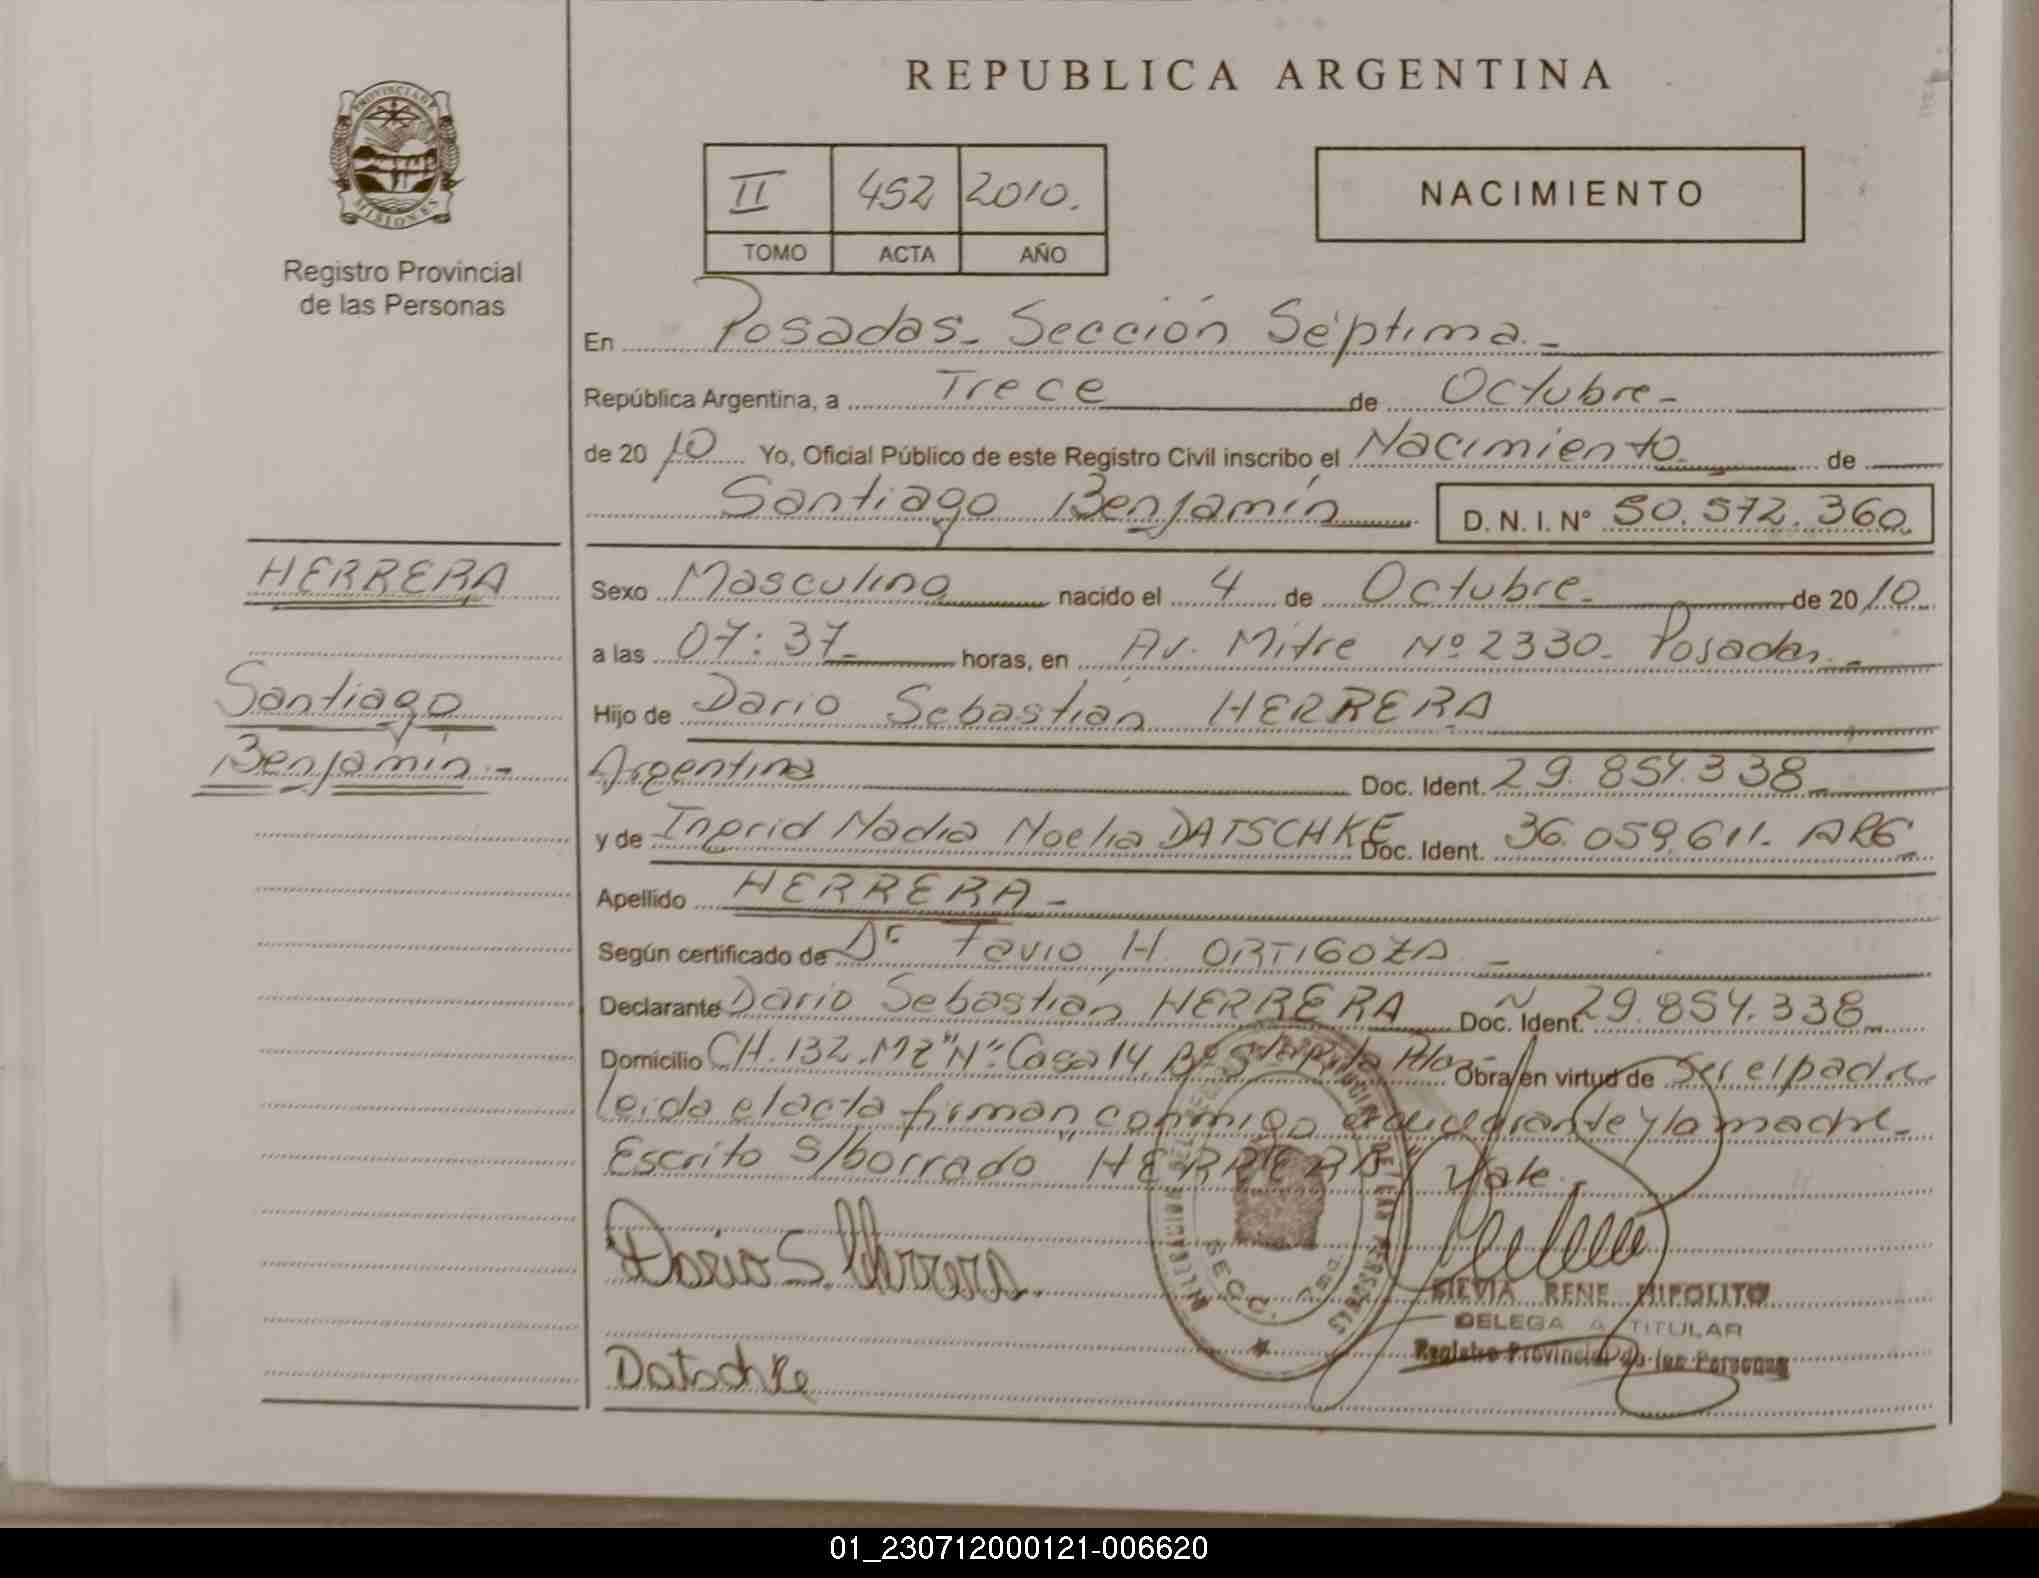 REPUBLICA ARGENTINA
PROVINCIA DE MISIONES
Registro Provincial
de las Personas
II 452 2010.
TOMO ACTA AÑO
NACIMIENTO
En Posadas - Sección Séptima. -
República Argentina, a Trece de Octubre -
de 2010 Yo, Oficial Público de este Registro Civil inscribo el Nacimiento de
Santiago Benjamín D. N. I. Nº 50.572.360
HERRERA
Santiago
Benjamín -
Sexo Masculino nacido el 4 de Octubre - de 2010
a las 07:37 horas, en Av. Mitre Nº 2330 - Posadas. -
Hijo de Dario Sebastián HERRERA
Argentina Doc. Ident. 29.854.338
y de Ingrid Nadia Noelia DATSCHKE Doc. Ident. 36.059.611. ARG
Apellido HERRERA -
Según certificado de Dr Favio H. ORTIGOZA -
Declarante Darío Sebastián HERRERA Doc. Ident. 29.854.338
Domicilio CH. 132. MZ "N". Casa 14 Bº Sta Rita Obra en virtud de ser el padre
leida el acta firman conmigo declarante y la madre -
Escrito s/borrado "HERRERA" Vale. -
Dario S. Herrera.
Datschke
SECC.
SILVIA RENE HIPOLITO
DELEGADA TITULAR
Registro Provincial de las Personas
01_230712000121-006620